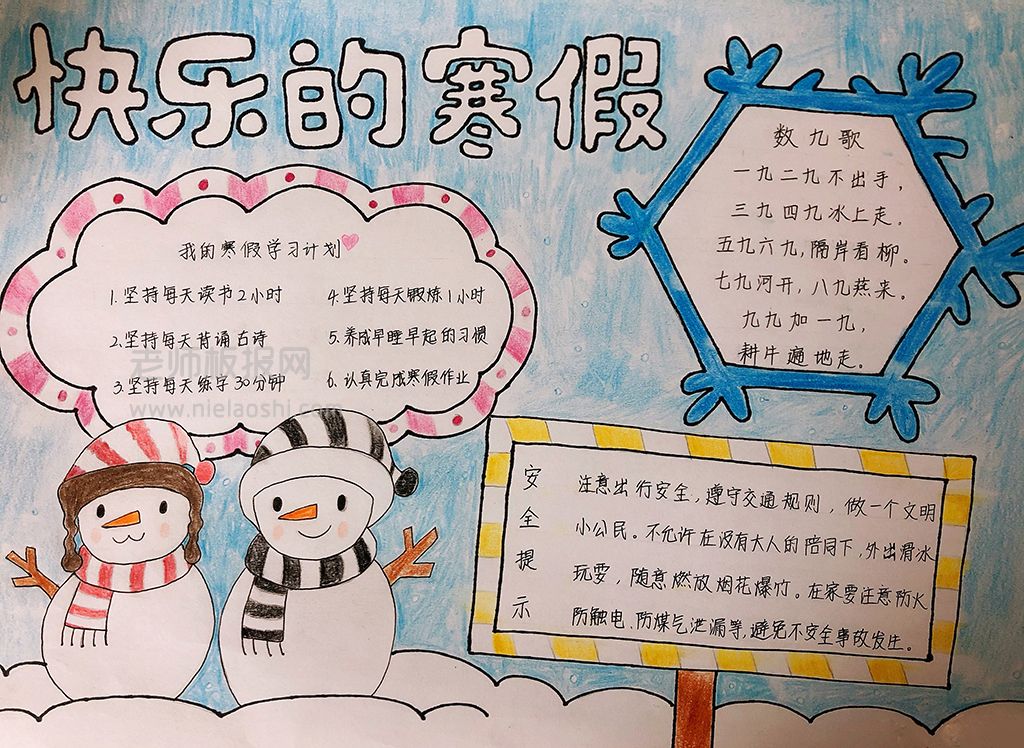 快乐的寒假
数九歌
一九二九不出手，
三九四九冰上走。
五九六九，隔岸看柳。
七九河开，八九燕来。
九九加一九，
耕牛遍地走。
我的寒假学习计划
1.坚持每天读书2小时
2.坚持每天背诵古诗
3.坚持每天练字30分钟
4.坚持每天锻炼1小时
5.养成早睡早起的习惯
6.认真完成寒假作业
老师板报网
www.nielaoshi.com
安全提示
注意出行安全，遵守交通规则，做一个文明
小公民。不允许在没有大人的陪同下，外出滑冰
玩耍，随意燃放烟花爆竹。在家要注意防火
防触电、防煤气泄漏等，避免不安全事故发生。